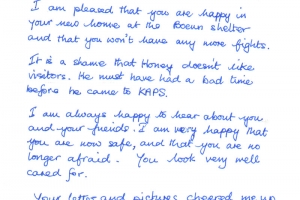 I am pleased that you are happy in
your new home at the Boeun shelter
and that you won't have any more fights.
It is a shame that Honey doesn't like
visitors. He must have had a bad time
before he came to KAPS.
I am always happy to hear about you
and your friends. I am very happy that
you are now safe, and that you are no
longer afraid. You look very well
cared for.
Your letter and pictures cheered me up